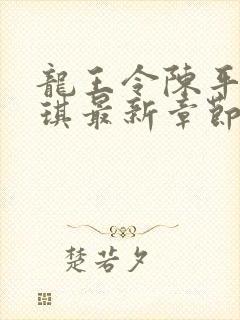 龍王令陳平
琪最新章節
楚若夕